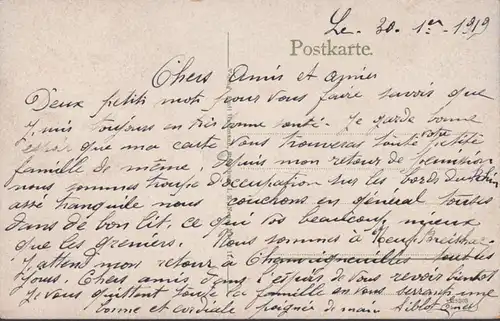 Le 30 1er 1919
Postkarte.
Chers amis et amies
Deux petits mot pour vous faire savoir que
je suis toujours en très bonne santé. Je garde bonne
espoir que ma carte vous trouveras toute votre petite
famille de même. Depuis mon retour de
nous sommes troupe d'occupation sur les bords du Rhin
assé tranquile nous couchons en général toutes
dans de bon lit. ce qui vos beaucoup mieux
que les greniers. Nous sommes à Neuf-Brisach
J'attend mon retour à tout les
jours. Chers amis dans l'espoir de vous revoir bientôt
Je vous quittent toute la famille en vous serrant une
bonne et cordiale poignée de main